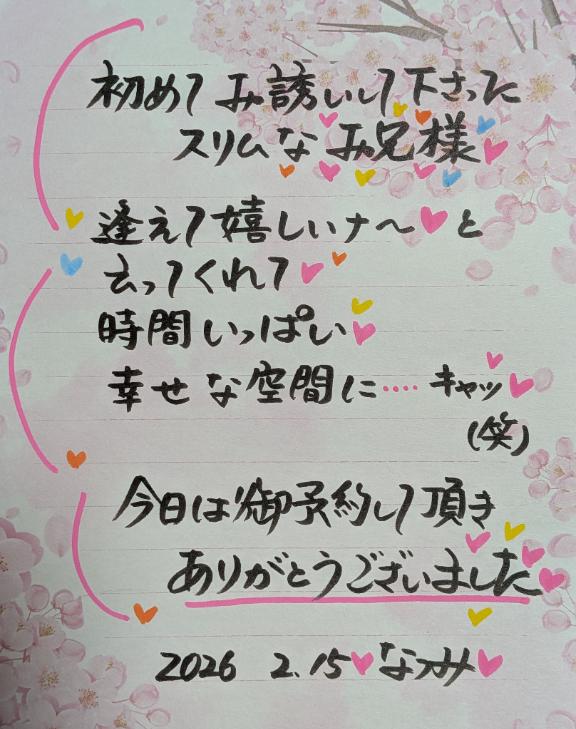 初めてお誘いして下さった
スリムなお兄様
逢えて嬉しいナ～と
云ってくれて
時間いっぱい
幸せな空間に…‥キャッ
(笑)
今日は御予約して頂き
ありがとうございました
2026 2.15 なつみ